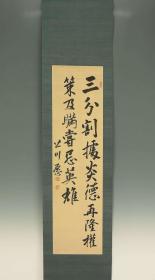 三分割據炎德再隆權
策及瞞尝忌英雄